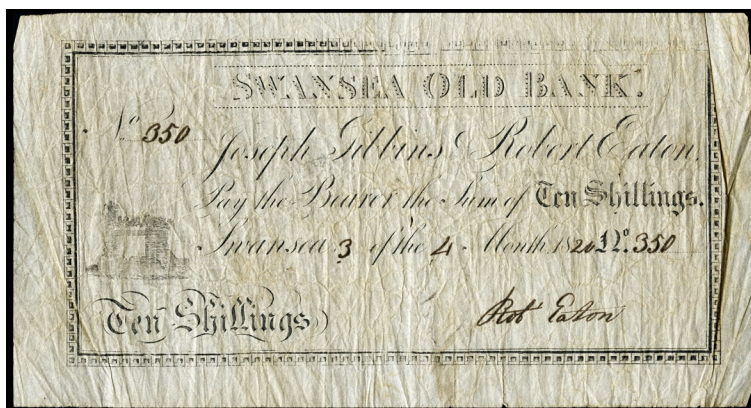 SWANSEA OLD BANK.
No 350
Joseph Gibbins & Robert Eaton,
Pay the Bearer the Sum of Ten Shillings.
Swansea 3 of the 4 Month 1820 No. 350
Ten Shillings
Robt Eaton